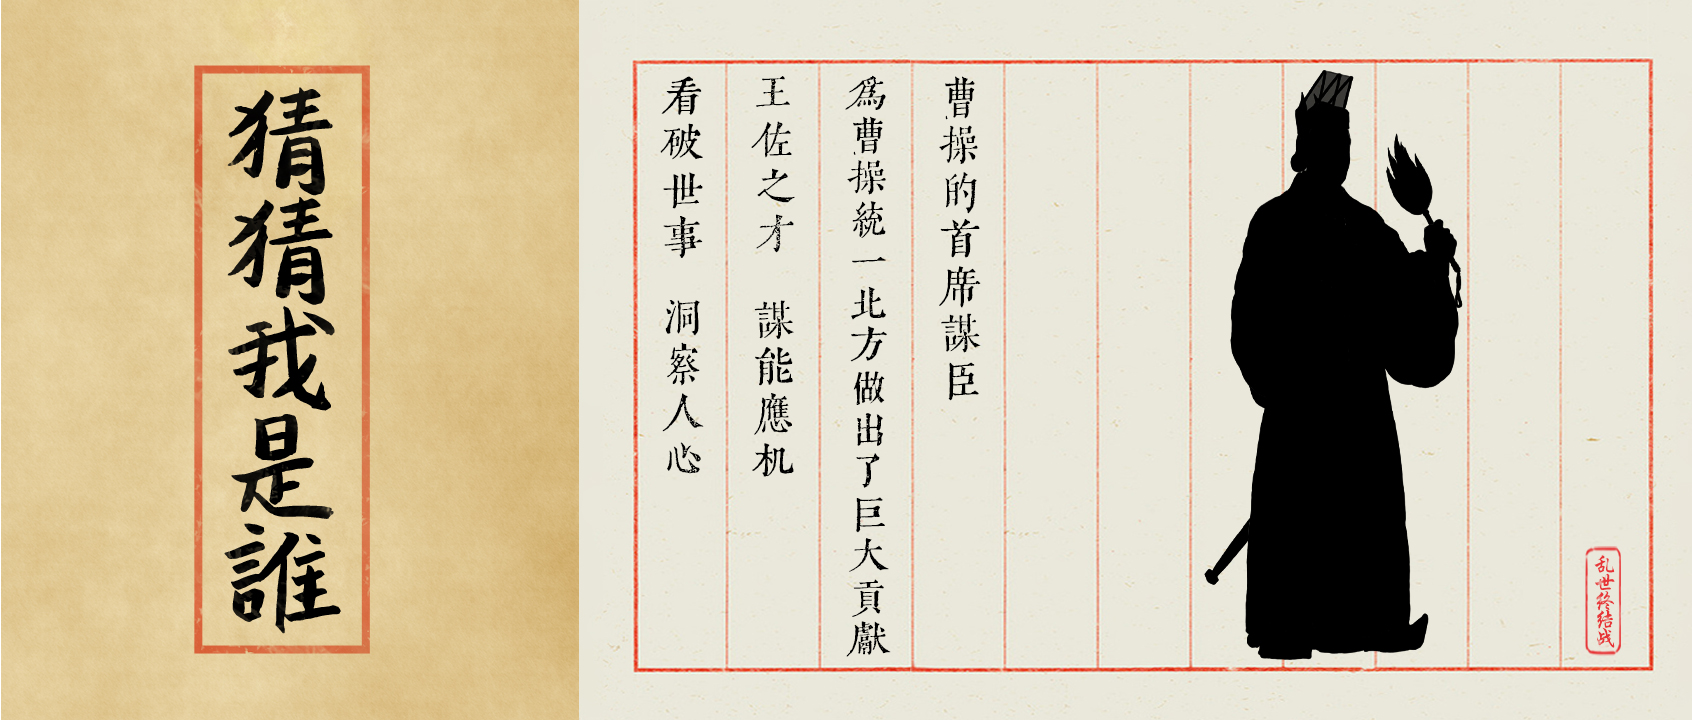 猜猜我是誰
曹操的首席謀臣
為曹操統一北方做出了巨大貢獻
王佐之才 謀能應机
看破世事 洞察人心
乱世终结战